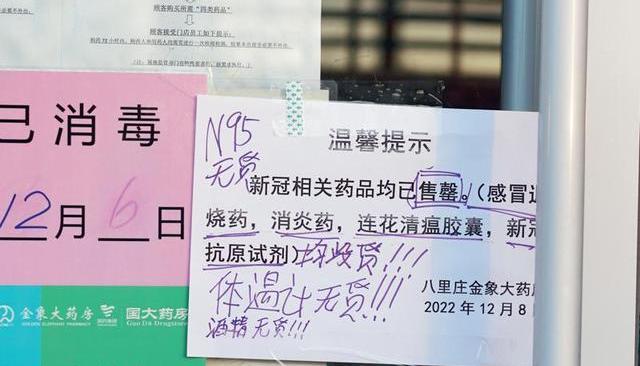 顾客购买所需“四类药品”
顾客接受门店员工如下提示:
已消毒
12月6日
金象大药房
GOLDEN ELEPHANT PHARMACY
国大药房
GuoDa Drugstore
N95
无货
温馨提示
新冠相关药品均已售罄。(感冒退
烧药，消炎药，连花清瘟胶囊，新冠
抗原试剂)均没货!!!!
体温计无货!!!
酒精无货!!!
八里庄金象大药房
2022年12月8